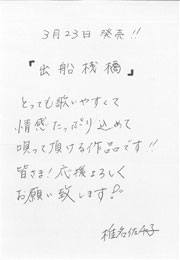 3月23日発売!!
『出船桟橋』
とっても歌いやすくて
情感たっぷり込めて
唄って頂ける作品です!!
皆さま!応援よろしく
お願い致します!
椎名佐千子